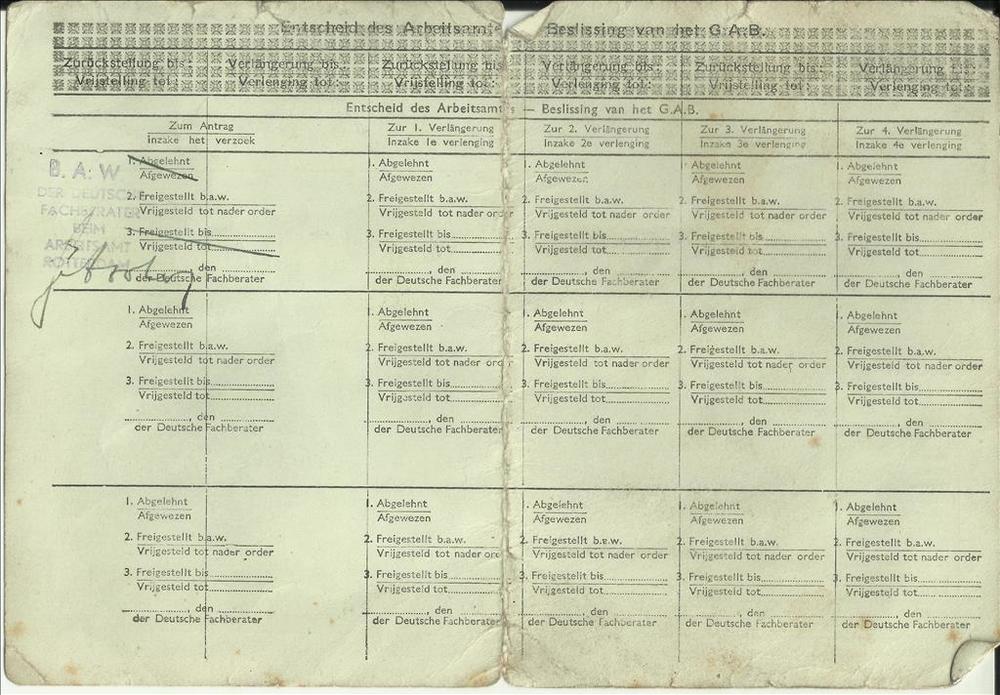 Entscheid des Arbeitsamtes Beslissing van het G.A.B.
Zurückstellung bis: Verlängerung bis: Zurückstellung bis Verlängerung bis: Zurückstellung bis: Verlängerung
Vrijstelling tot: Verlenging tot: Vrijstelling tot: Verlenging tot: Vrijstelling tot: Verlenging tot:
Entscheid des Arbeitsamtes — Beslissing van het G.A.B.
Zum Antrag Zur 1. Verlängerung Zur 2. Verlängerung Zur 3. Verlängerung Zur 4. Verlängerung
Inzake het verzoek Inzake 1e verlenging Inzake 2e verlenging Inzake 3e verlenging Inzake 4e verlenging
B. A. W
DER DEUTSCHE
FACHBERATER
BEIM
ARBEITSAMT
ROTTERDAM
1. Abgelehnt 1. Abgelehnt 1. Abgelehnt 1. Abgelehnt 1. Abgelehnt
Afgewezen Afgewezen Afgewezen Afgewezen Afgewezen
2. Freigestellt b.a.w. 2. Freigestellt b.a.w. 2. Freigestellt b.a.w. 2. Freigestellt b.a.w. 2. Freigestellt b.a.w.
Vrijgesteld tot nader order Vrijgesteld tot nader order Vrijgesteld tot nader order Vrijgesteld tot nader order Vrijgesteld tot nader order
3. Freigestellt bis 3. Freigestellt bis 3. Freigestellt bis 3. Freigestellt bis 3. Freigestellt bis
Vrijgesteld tot Vrijgesteld tot Vrijgesteld tot Vrijgesteld tot Vrijgesteld tot
, den , den , den , den , den
der Deutsche Fachberater der Deutsche Fachberater der Deutsche Fachberater der Deutsche Fachberater der Deutsche Fachberater
1. Abgelehnt 1. Abgelehnt 1. Abgelehnt 1. Abgelehnt 1. Abgelehnt
Afgewezen Afgewezen Afgewezen Afgewezen Afgewezen
2. Freigestellt b.a.w. 2. Freigestellt b.a.w. 2. Freigestellt b.a.w. 2. Freigestellt b.a.w. 2. Freigestellt b.a.w.
Vrijgesteld tot nader order Vrijgesteld tot nader order Vrijgesteld tot nader order Vrijgesteld tot nader order Vrijgesteld tot nader order
3. Freigestellt bis 3. Freigestellt bis 3. Freigestellt bis 3. Freigestellt bis 3. Freigestellt bis
Vrijgesteld tot Vrijgesteld tot Vrijgesteld tot Vrijgesteld tot Vrijgesteld tot
, den , den , den , den , den
der Deutsche Fachberater der Deutsche Fachberater der Deutsche Fachberater der Deutsche Fachberater der Deutsche Fachberater
1. Abgelehnt 1. Abgelehnt 1. Abgelehnt 1. Abgelehnt 1. Abgelehnt
Afgewezen Afgewezen Afgewezen Afgewezen Afgewezen
2. Freigestellt b.a.w. 2. Freigestellt b.a.w. 2. Freigestellt b.a.w. 2. Freigestellt b.a.w. 2. Freigestellt b.a.w.
Vrijgesteld tot nader order Vrijgesteld tot nader order Vrijgesteld tot nader order Vrijgesteld tot nader order Vrijgesteld tot nader order
3. Freigestellt bis 3. Freigestellt bis 3. Freigestellt bis 3. Freigestellt bis 3. Freigestellt bis
Vrijgesteld tot Vrijgesteld tot Vrijgesteld tot Vrijgesteld tot Vrijgesteld tot
, den , den , den , den , den
der Deutsche Fachberater der Deutsche Fachberater der Deutsche Fachberater der Deutsche Fachberater der Deutsche Fachberater